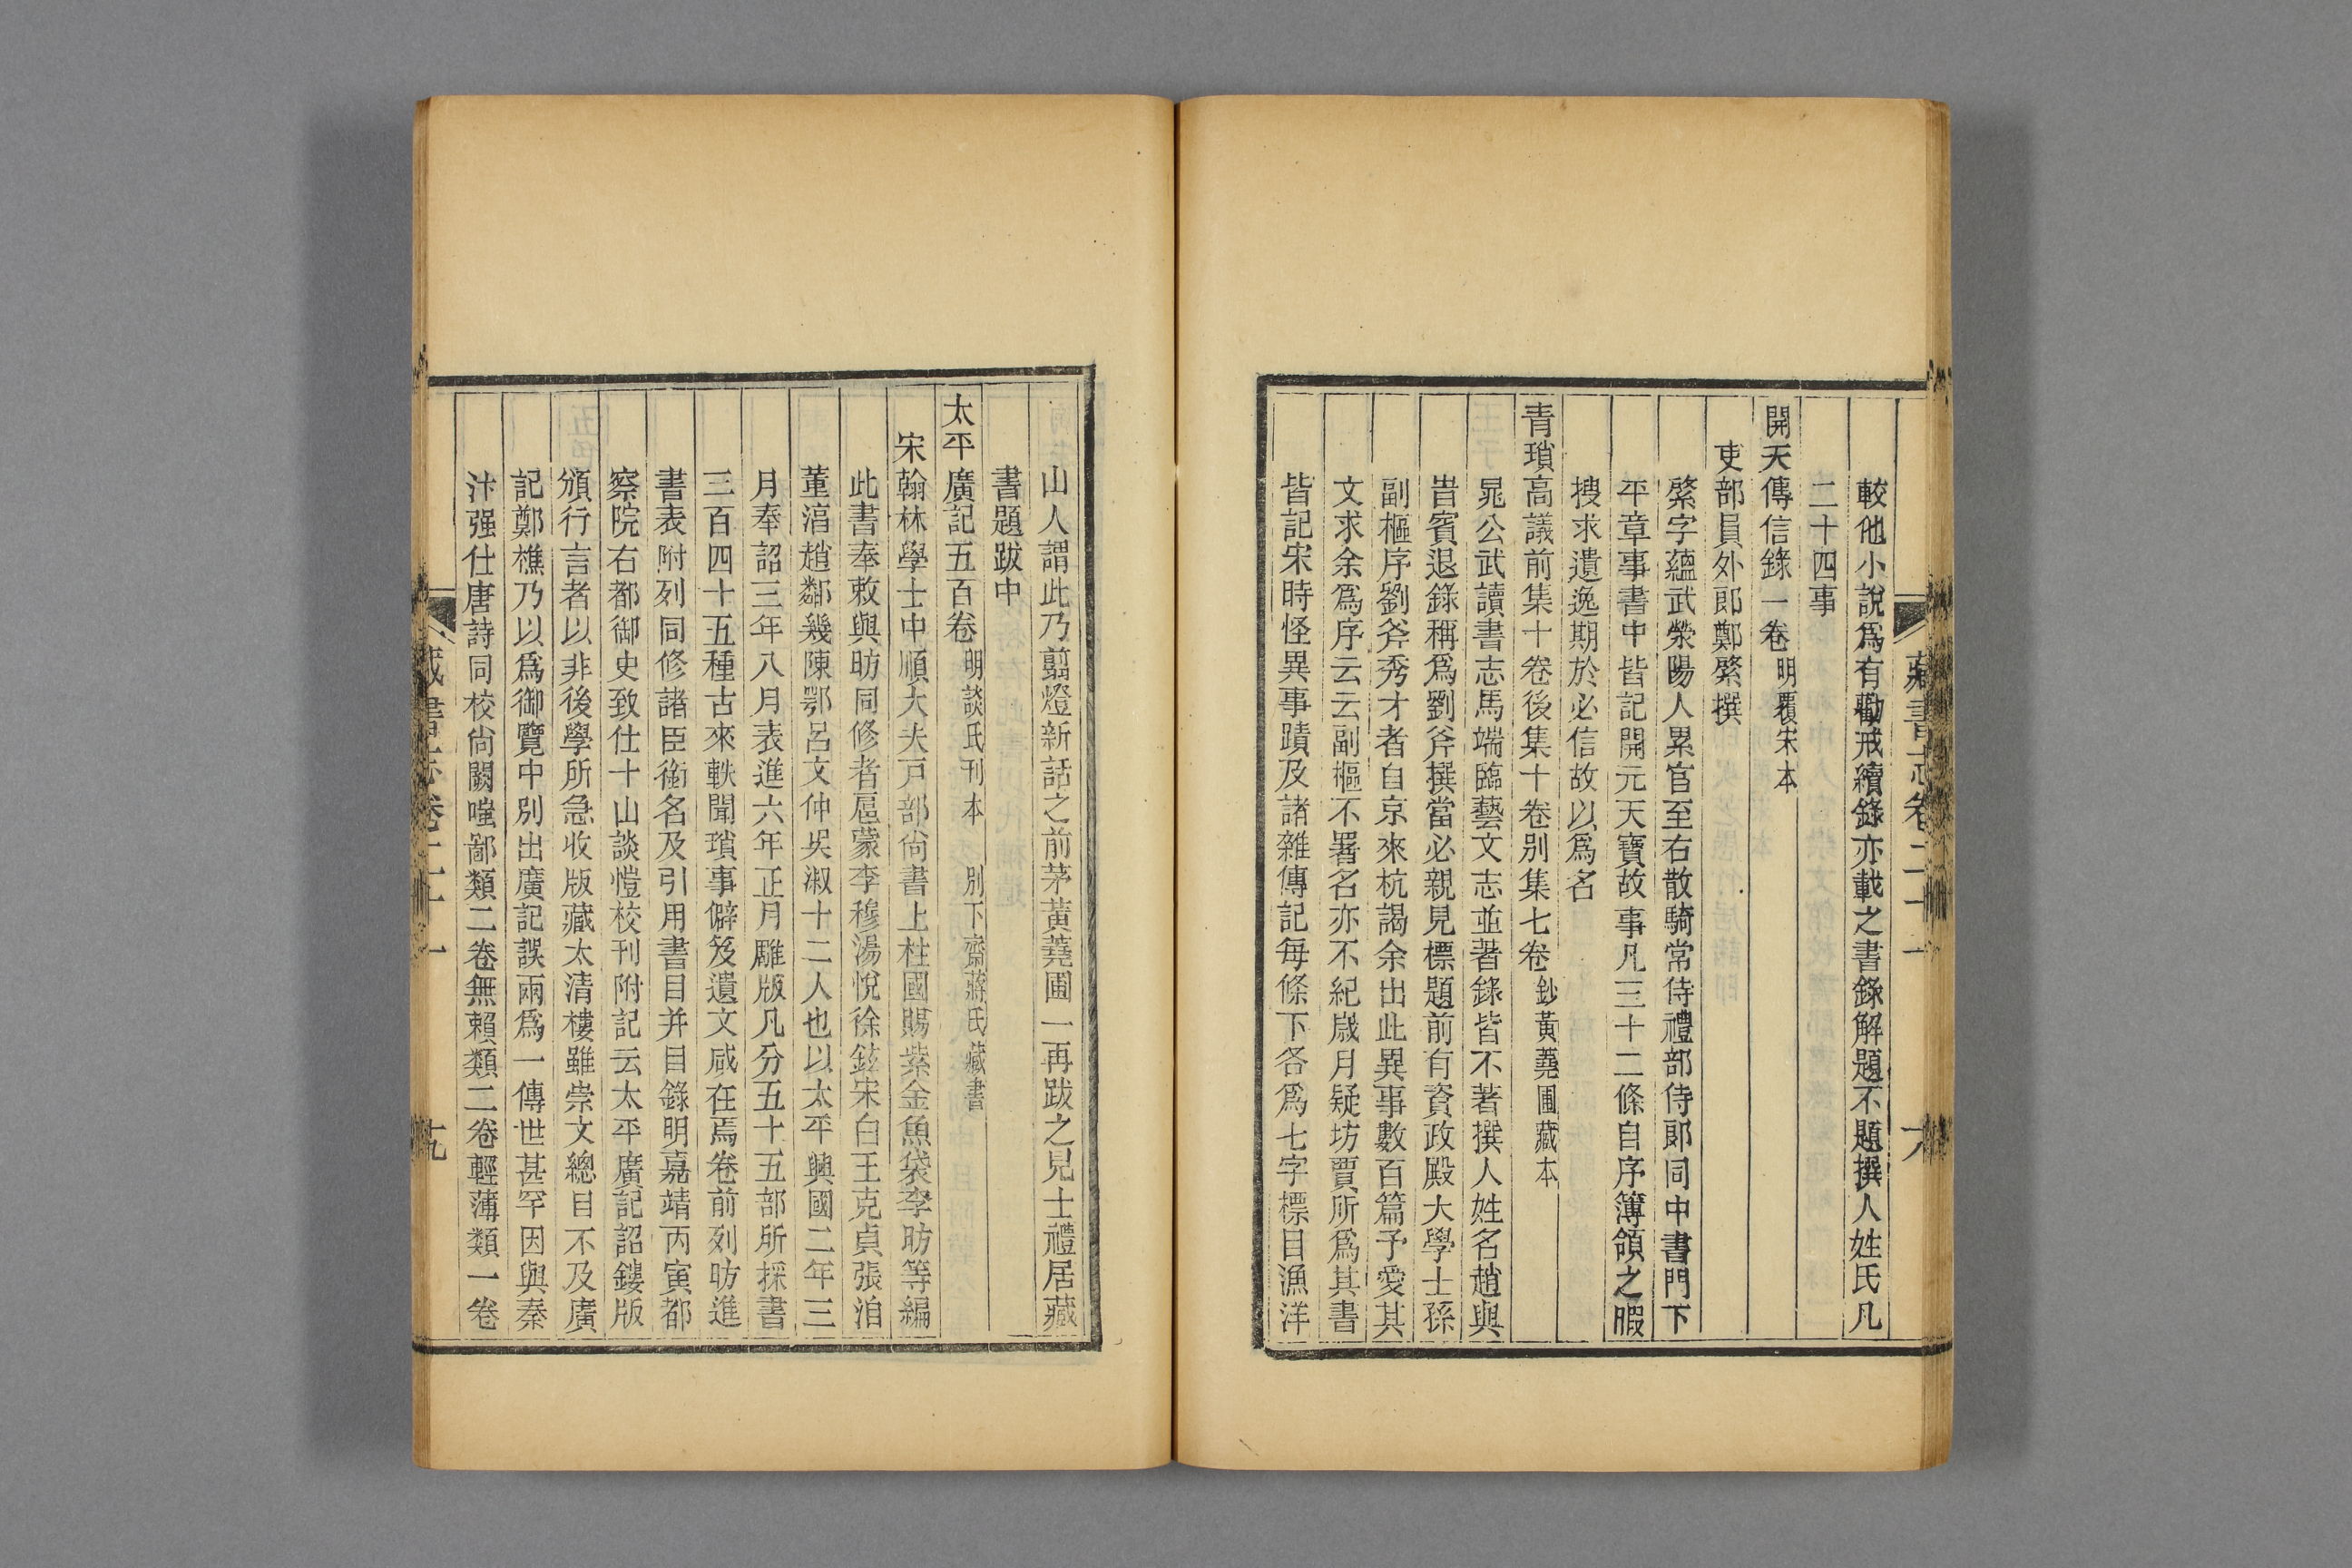 較他小說爲有勸戒續錄亦載之書錄解題不題撰人姓氏凡
二十四事
開天傳信錄一卷 明覆宋本
吏部員外郎鄭綮撰
綮字蘊武滎陽人累官至右散騎常侍禮部侍郎同中書門下
平章事書中皆記開元天寶故事凡三十二條自序簿領之暇
搜求遺逸期於必信故以爲名
青瑣高議前集十卷後集十卷別集七卷 鈔黃蕘圃藏本
晁公武讀書志馬端臨藝文志並著錄皆不著撰人姓名趙與
旹賓退錄稱爲劉斧撰當必親見標題前有資政殿大學士孫
副樞序劉斧秀才者自京來杭謁余出此異事數百篇予愛其
文求余爲序云云副樞不署名亦不紀歲月疑坊賈所爲其書
皆記宋時怪異事蹟及諸雜傳記每條下各爲七字標目漁洋
山人謂此乃翦燈新話之前茅黃蕘圃一再跋之見士禮居藏
書題跋中
太平廣記五百卷 明談氏刊本 別下齋蔣氏藏書
宋翰林學士中順大夫戸部尙書上柱國賜紫金魚袋李昉等編
此書奉敕與昉同修者扈蒙李穆湯悅徐鉉宋白王克貞張洎
董淳趙鄰幾陳鄂呂文仲吳淑十二人也以太平興國二年三
月奉詔三年八月表進六年正月雕版凡分五十五部所採書
三百四十五種古來軼聞瑣事僻笈遺文咸在焉卷前列昉進
書表附列同修諸臣銜名及引用書目并目錄明嘉靖丙寅都
察院右都御史致仕十山談愷校刊附記云太平廣記詔鏤版
頒行言者以非後學所急收版藏太清樓雖崇文總目不及廣
記鄭樵乃以爲御覽中別出廣記誤兩爲一傳世甚罕因與秦
汴强仕唐詩同校尙闕嗤鄙類二卷無賴類二卷輕薄類一卷